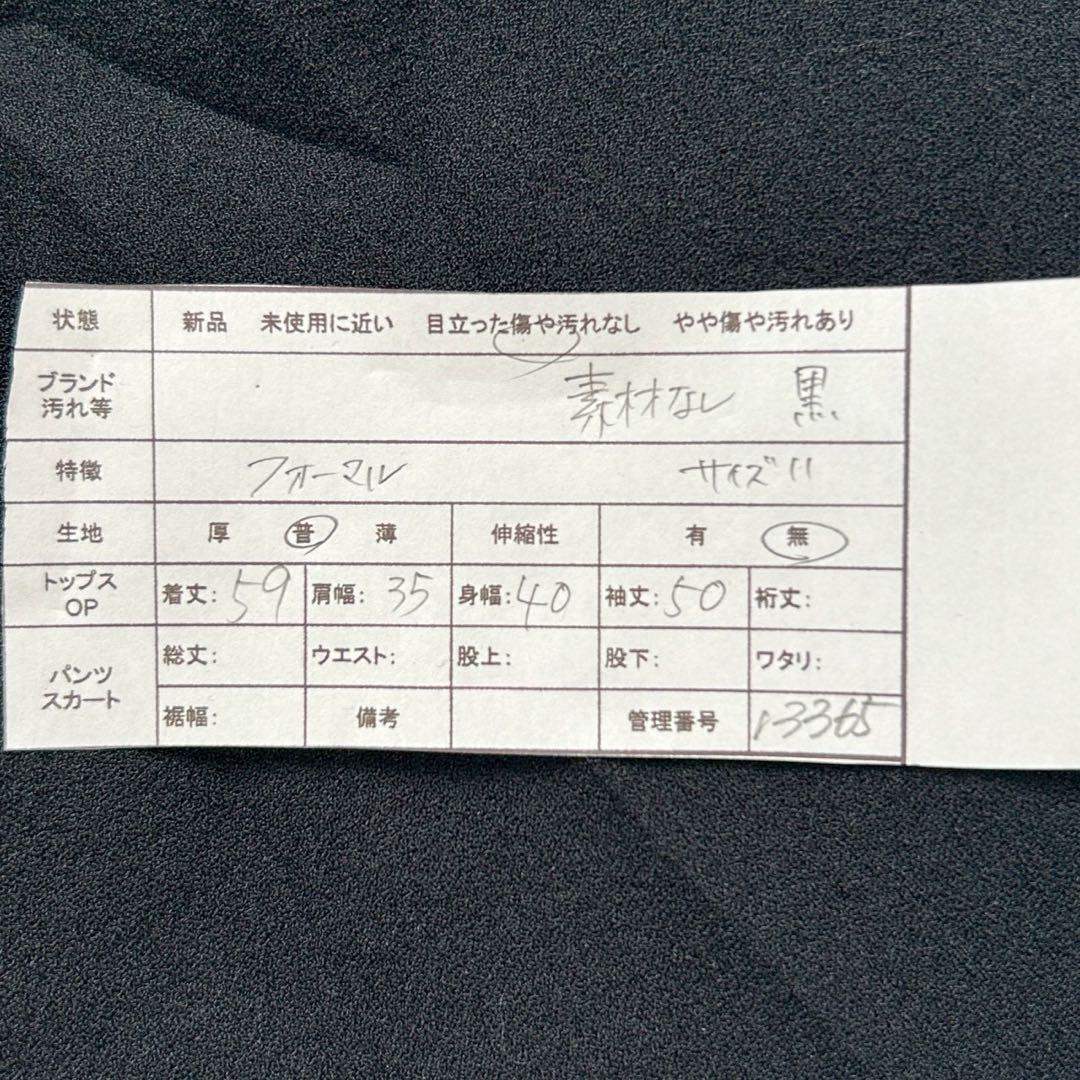 状態 新品 未使用に近い 目立った傷や汚れなし やや傷や汚れあり
ブランド
汚れ等 素材なし 黒
特徴 フォーマル サイズ11
生地 厚 普 薄 伸縮性 有 無
トップス
OP 着丈:59 肩幅:35 身幅:40 袖丈:50 裄丈:
パンツ
スカート 総丈: ウエスト: 股上: 股下: ワタリ:
裾幅: 備考 管理番号 13365